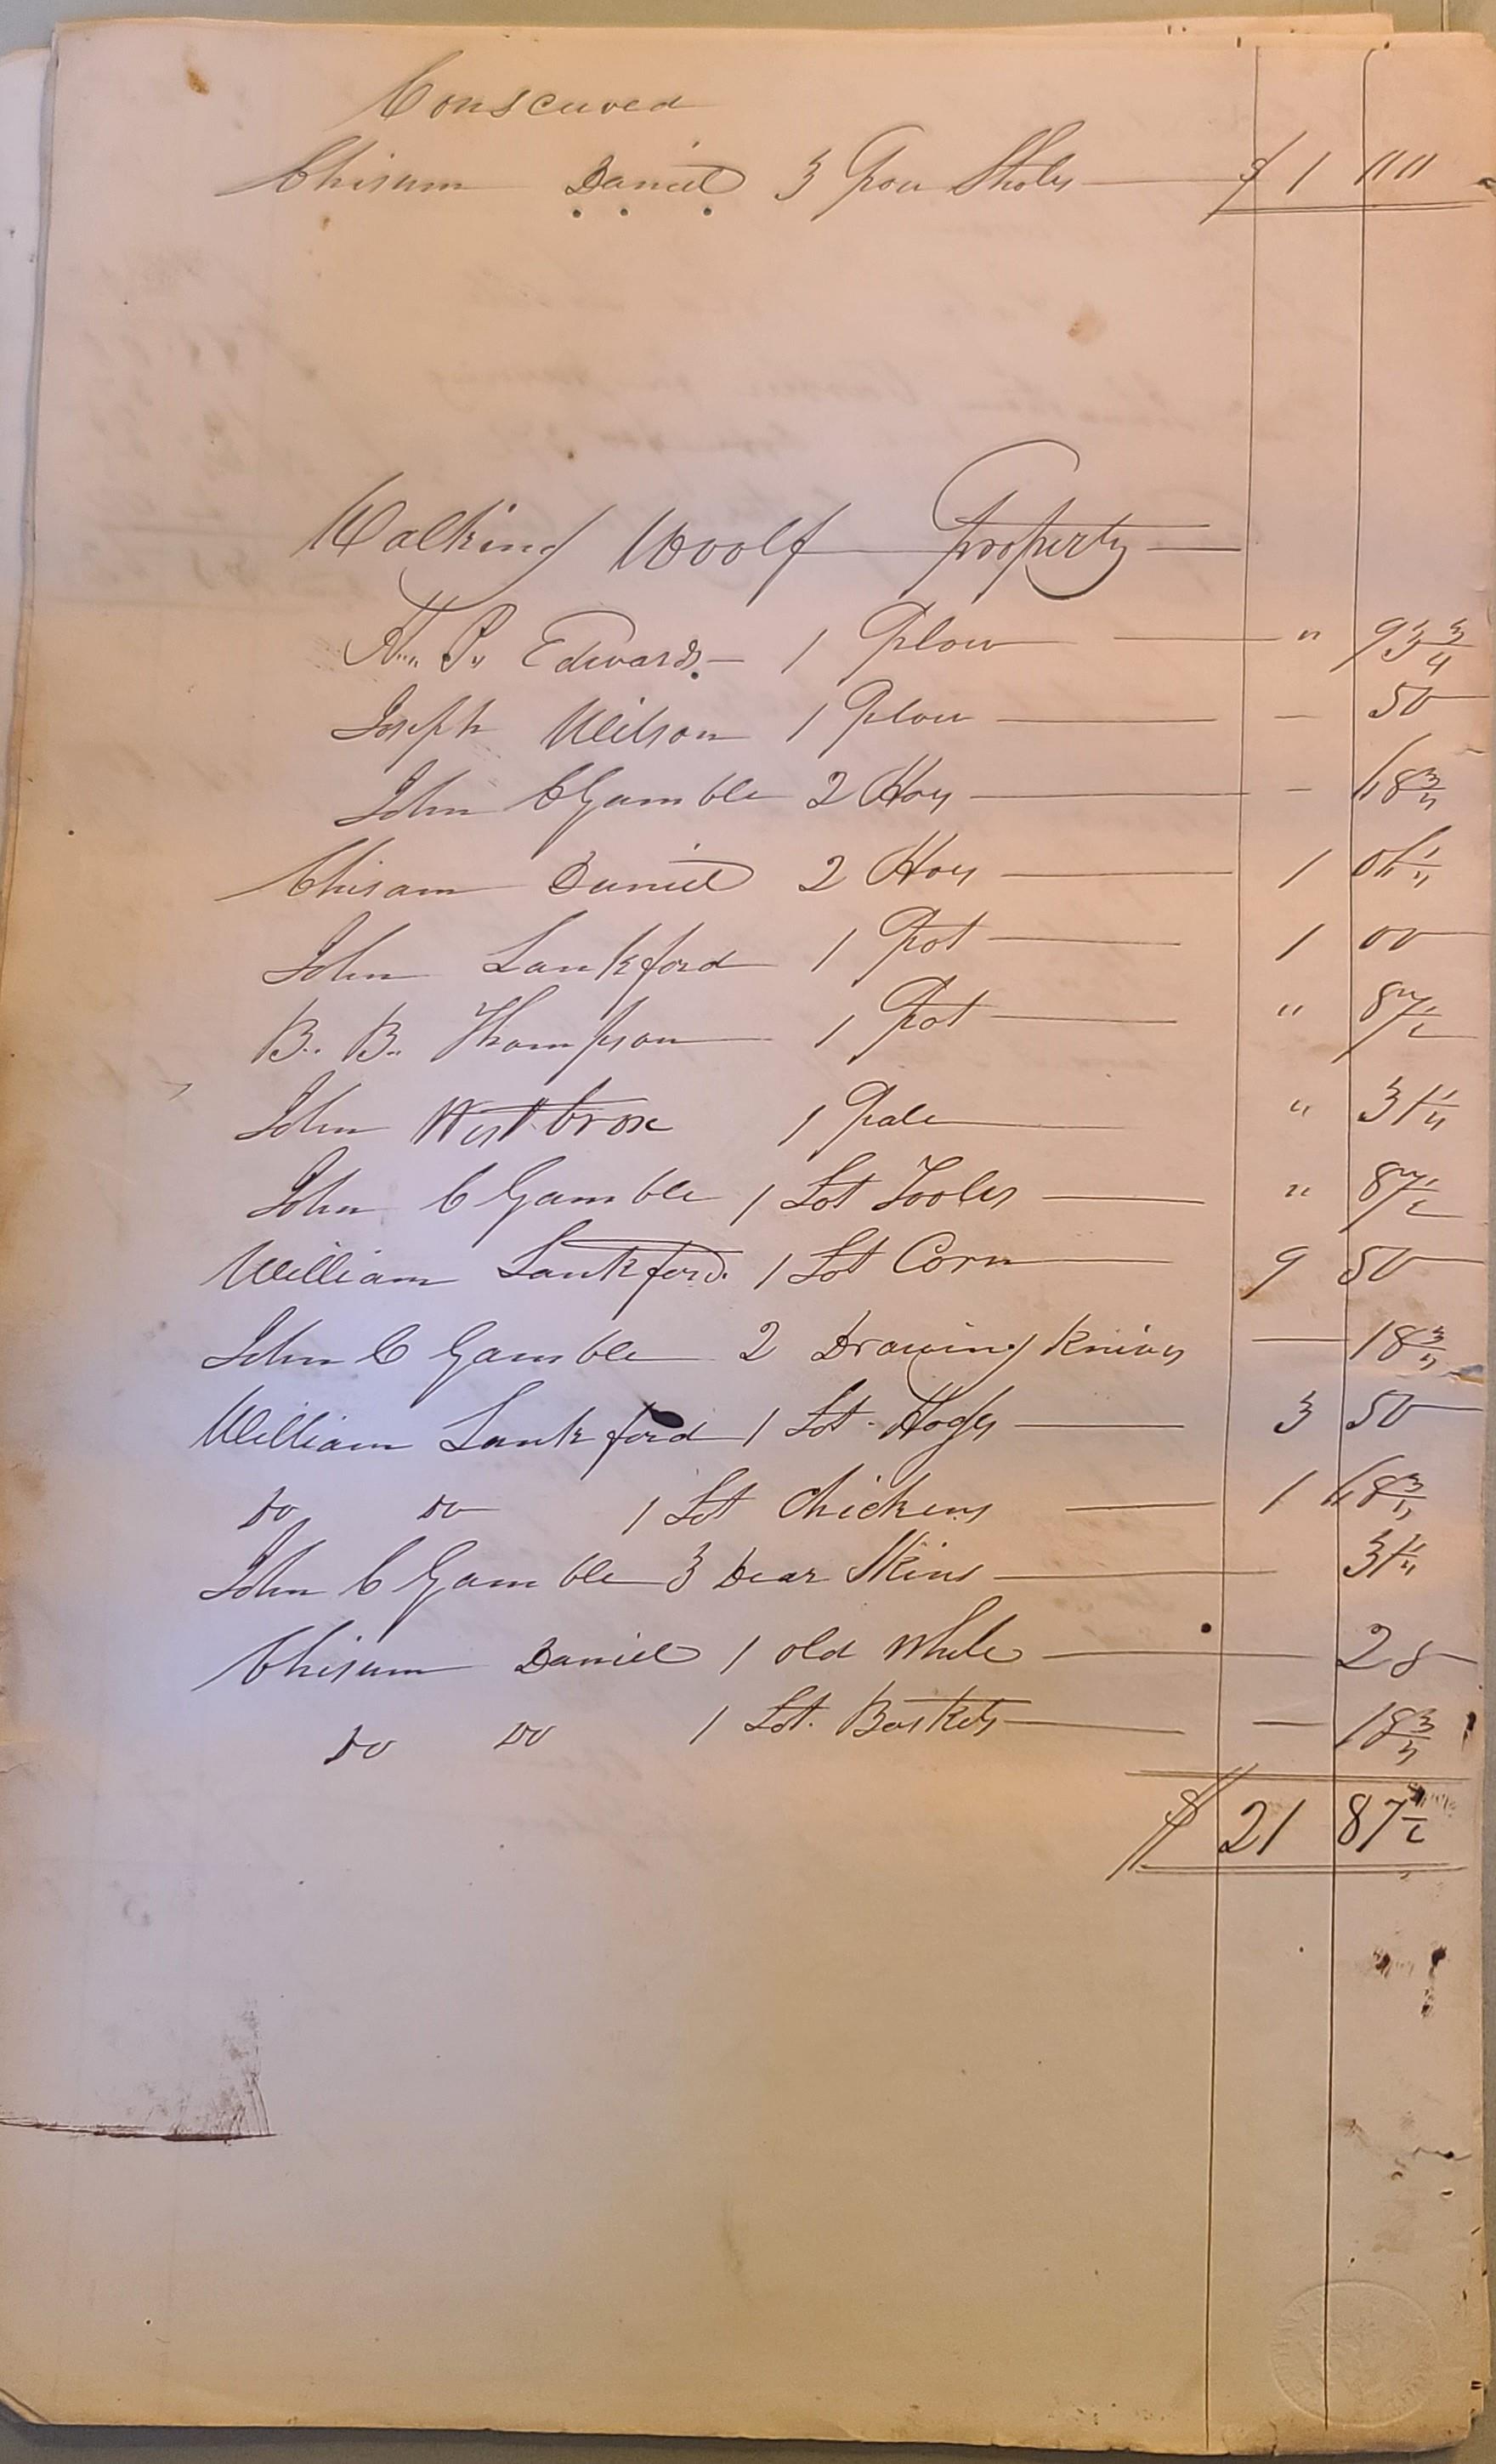 Conseuved
Chisum Daniel 3 Pou Sholes $ 1 00
Walking Woolf Property
H. P. Edwards 1 Plow " 93 3/4
Joseph Wilson 1 Plow — 50
John C Gamble 2 Hoes — 68 3/4
Chisam Daniel 2 Hoes 1 06 1/4
John Lankford 1 Pot 1 00
B. B. Thompson 1 Pot " 87 1/2
John Westbrox 1 Pale " 31 1/4
John C Gamble 1 Lot Tooles " 87 1/2
William Lankford. 1 Lot Corn 9 50
John C Gamble 2 Drawing Knives — 18 3/4
William Lankford 1 Lot Hogs 3 50
Do Do 1 Lot Chickens 1 68 3/4
John C Gamble 3 Dear Skins — 31 1/4
Chisum Daniel 1 old While — 25
Do Do 1 Lot. Baskets — 18 3/4
$ 21 87 1/2